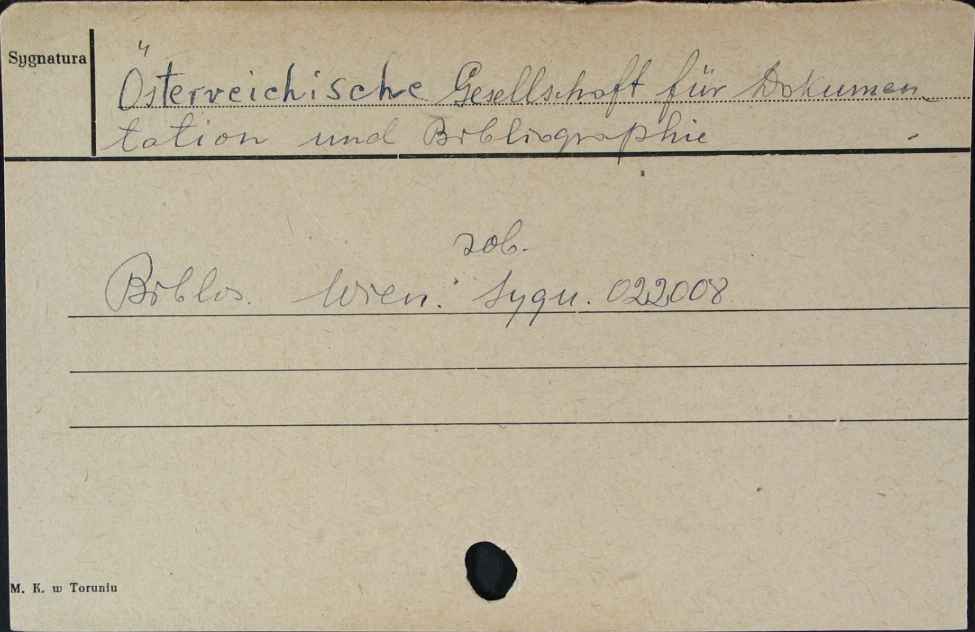 Sygnatura
Österreichische Gesellschaft für Dokumen-
tation und Bibliographie
zob.
Biblos. Wien. Sygn. 022008
M. K. w Toruniu